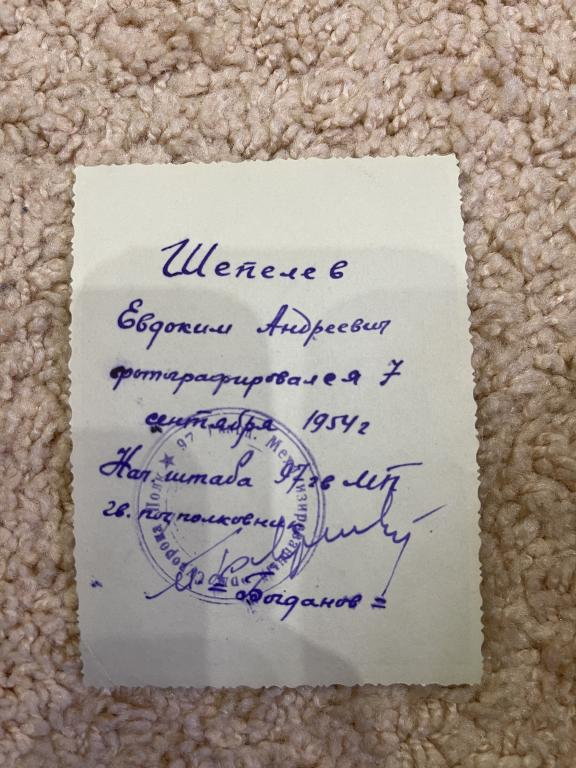 Шепелев
Евдоким Андреевич
фотографировался 7
сентября 1954 г
Нач. штаба 97 гв МП
гв. подполковник
= Богданов =
★ 97